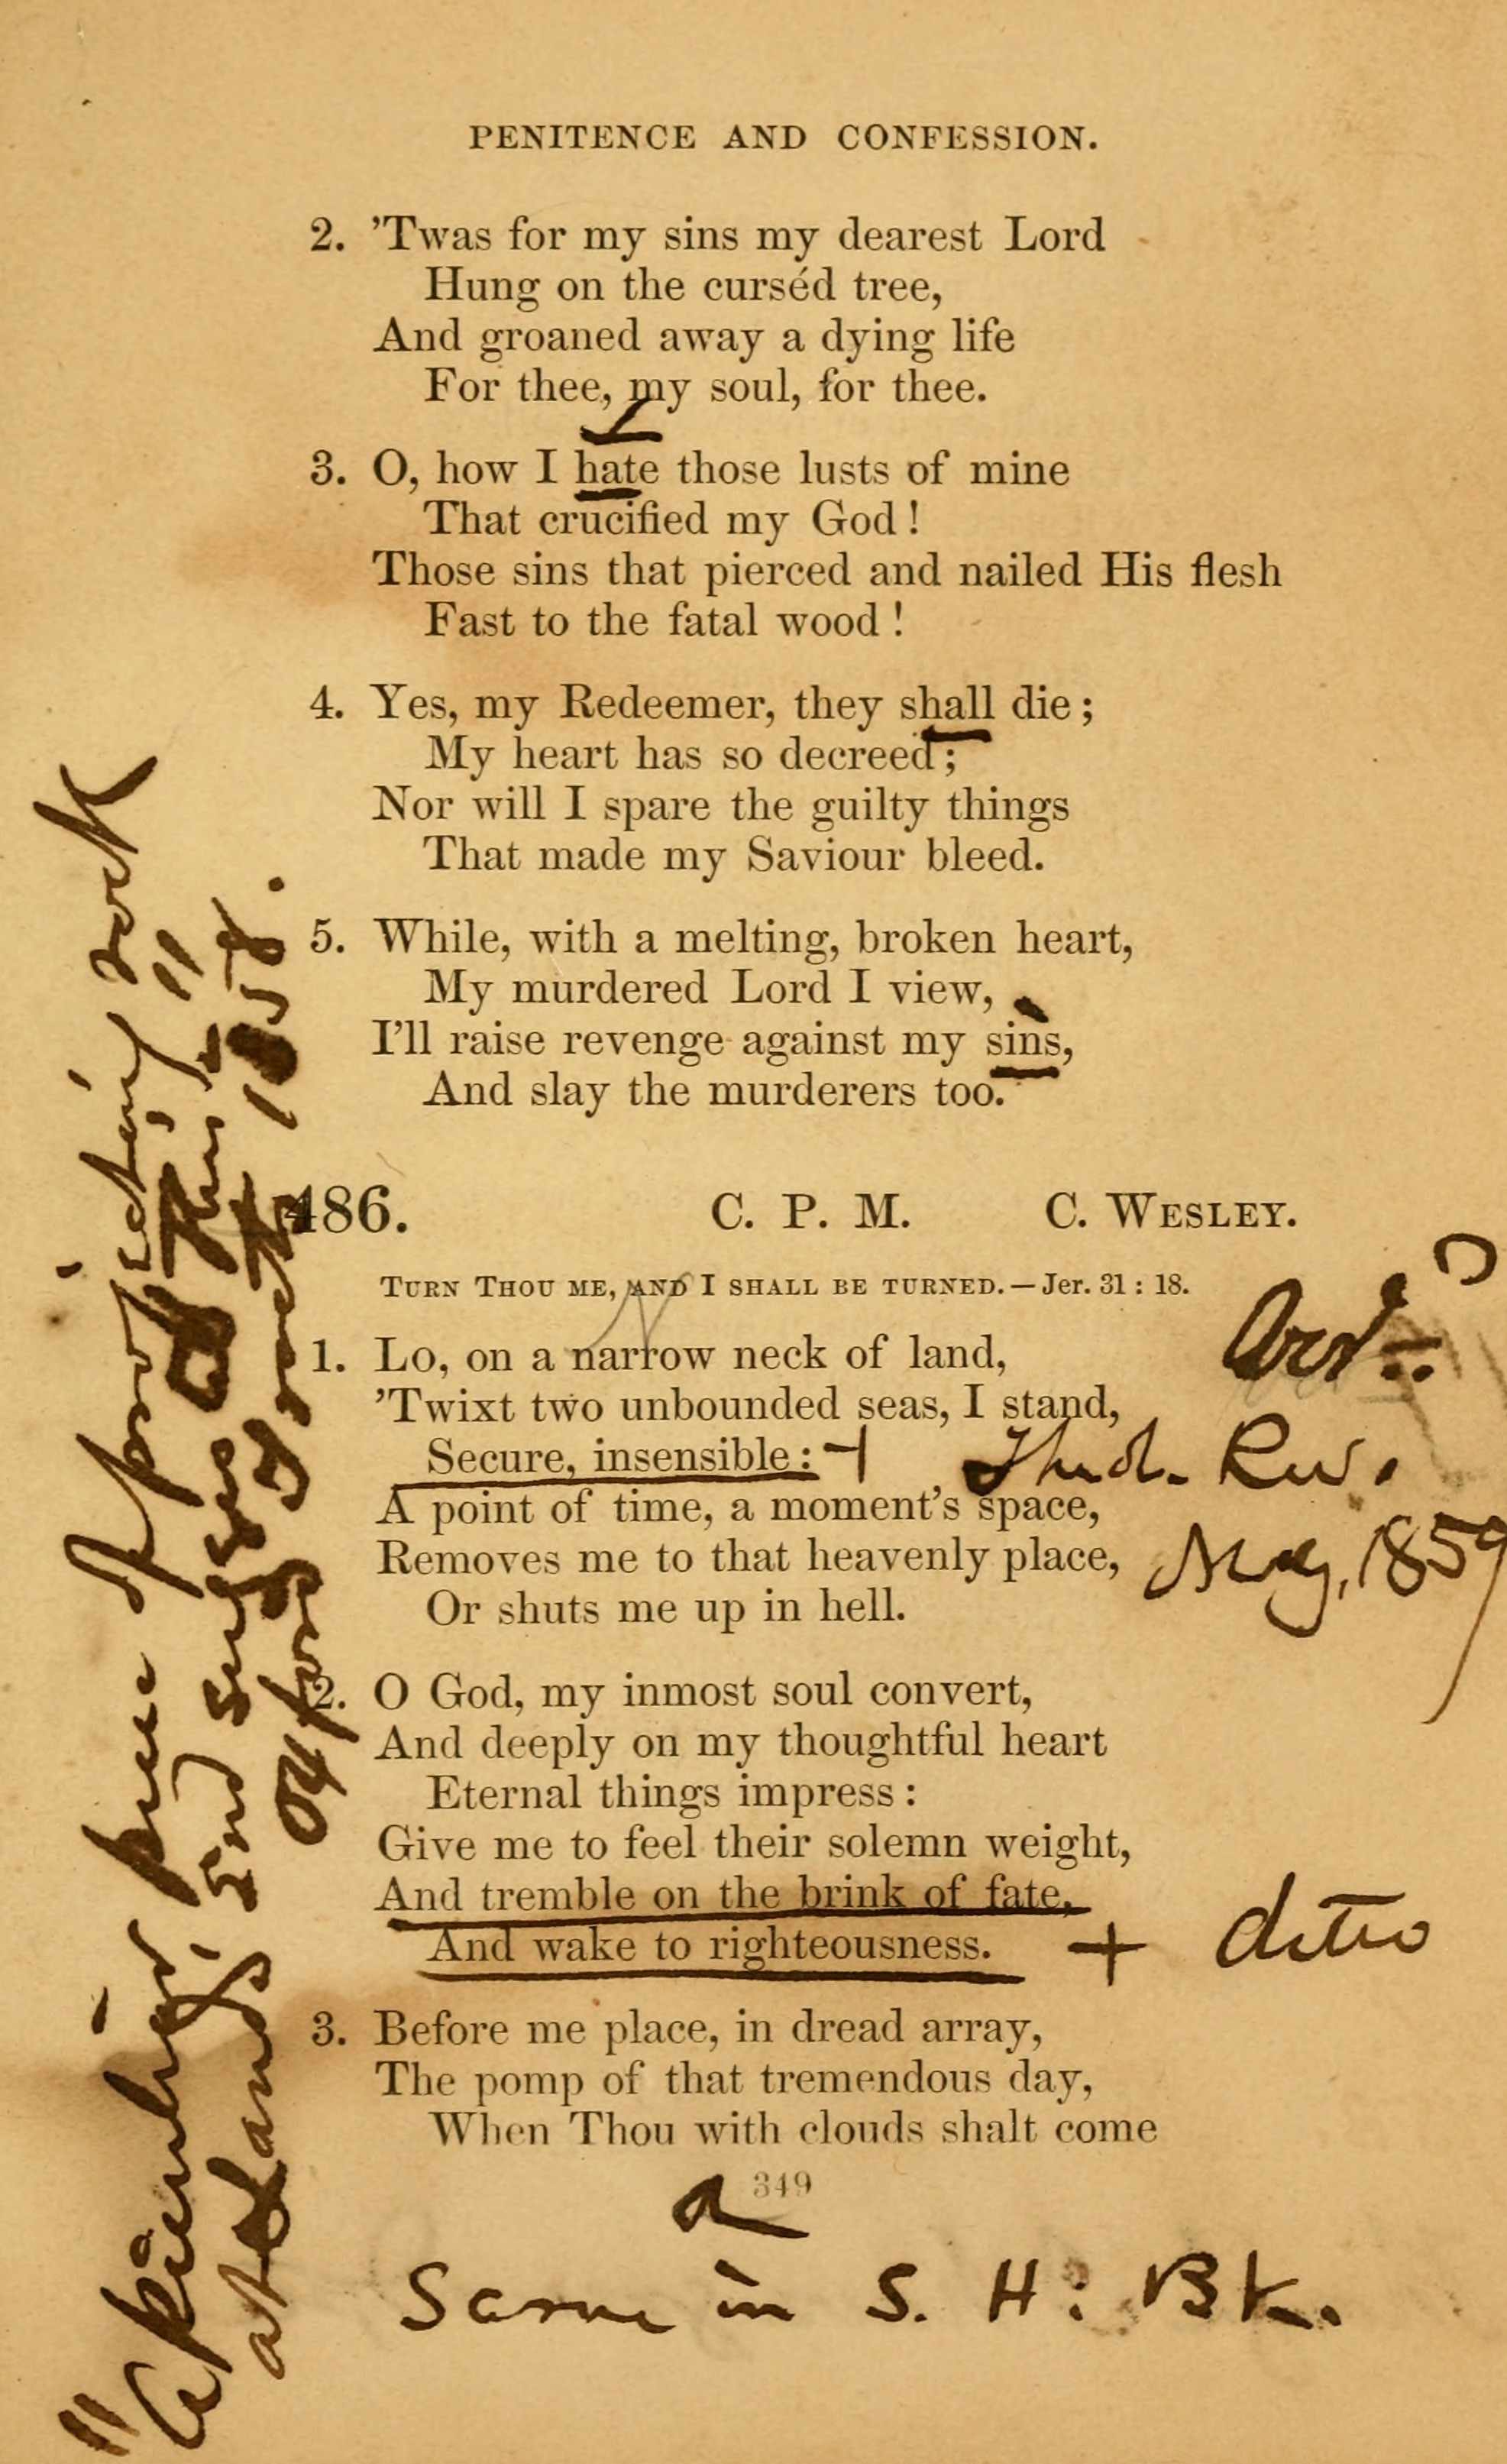 PENITENCE AND CONFESSION.
2. ’Twas for my sins my dearest Lord
Hung on the curséd tree,
And groaned away a dying life
For thee, my soul, for thee.
3. O, how I hate those lusts of mine
That crucified my God!
Those sins that pierced and nailed His flesh
Fast to the fatal wood!
4. Yes, my Redeemer, they shall die;
My heart has so decreed;
Nor will I spare the guilty things
That made my Saviour bleed.
5. While, with a melting, broken heart,
My murdered Lord I view,
I’ll raise revenge against my sins,
And slay the murderers too.
486. C. P. M. C. WESLEY.
TURN THOU ME, AND I SHALL BE TURNED.—Jer. 31:18.
1. Lo, on a narrow neck of land,
’Twixt two unbounded seas, I stand,
Secure, insensible:
A point of time, a moment’s space,
Removes me to that heavenly place,
Or shuts me up in hell.
2. O God, my inmost soul convert,
And deeply on my thoughtful heart
Eternal things impress:
Give me to feel their solemn weight,
And tremble on the brink of fate,
And wake to righteousness. + ditto
3. Before me place, in dread array,
The pomp of that tremendous day,
When Thou with clouds shalt come
349
Rev.
1859
Same in S. H. Bk.
"A peculiar piece of projecting rock
at Land's End suggested this"